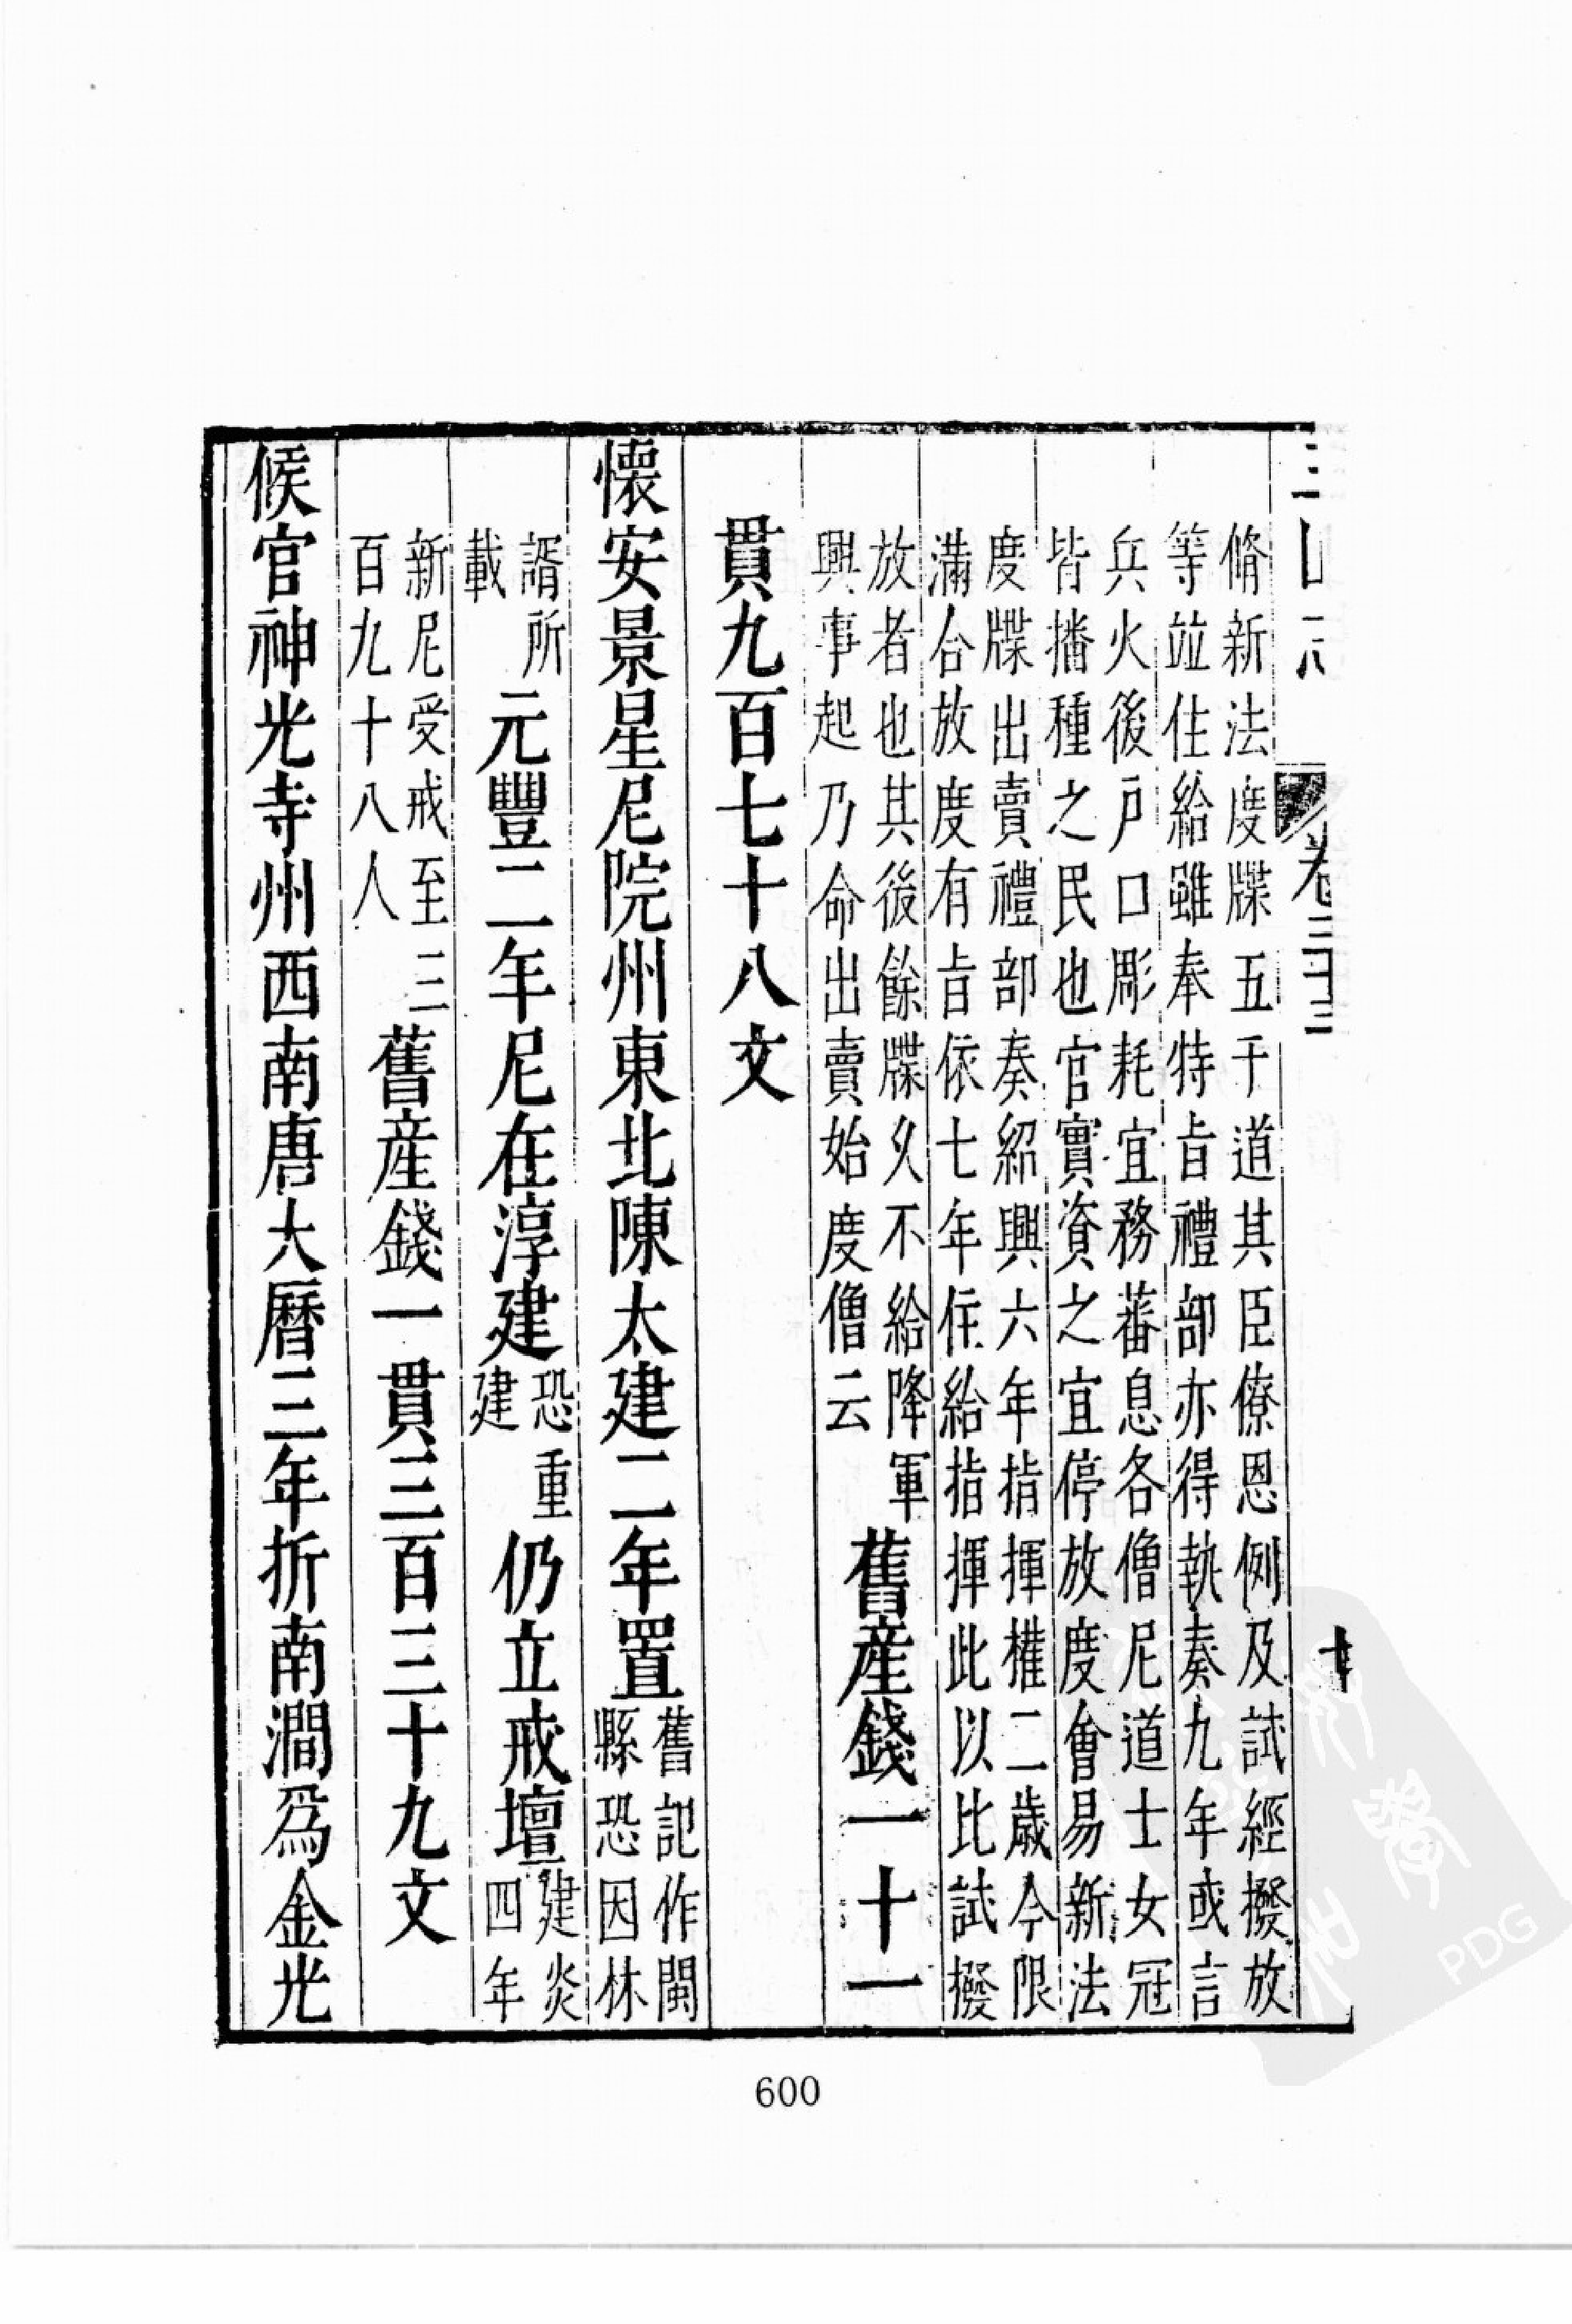 三山志 卷三十三 十
脩新法度牒五千道其臣僚恩例及試經撥放
等竝住給雖奉特旨禮部亦得執奏九年或言
兵火後戶口彫耗宜務蕃息各僧尼道士女冠
皆播種之民也官實資之宜停放度會易新法
度牒出賣禮部奏紹興六年指揮權二歲今限
滿合放度有旨依七年住給指揮此以比試撥
放者也其後餘牒久不給降軍
興事起乃命出賣始度僧云
舊產錢一十一
貫九百七十八文
懷安景星尼院州東北陳太建二年置
舊記作閩
縣恐因林
諝所
載
元豐二年尼在淳建
恐重
建
仍立戒壇
建炎
四年
新尼受戒至三
百九十八人
舊產錢一貫三百三十九文
候官神光寺州西南唐大曆三年折南澗爲金光
600
PDG